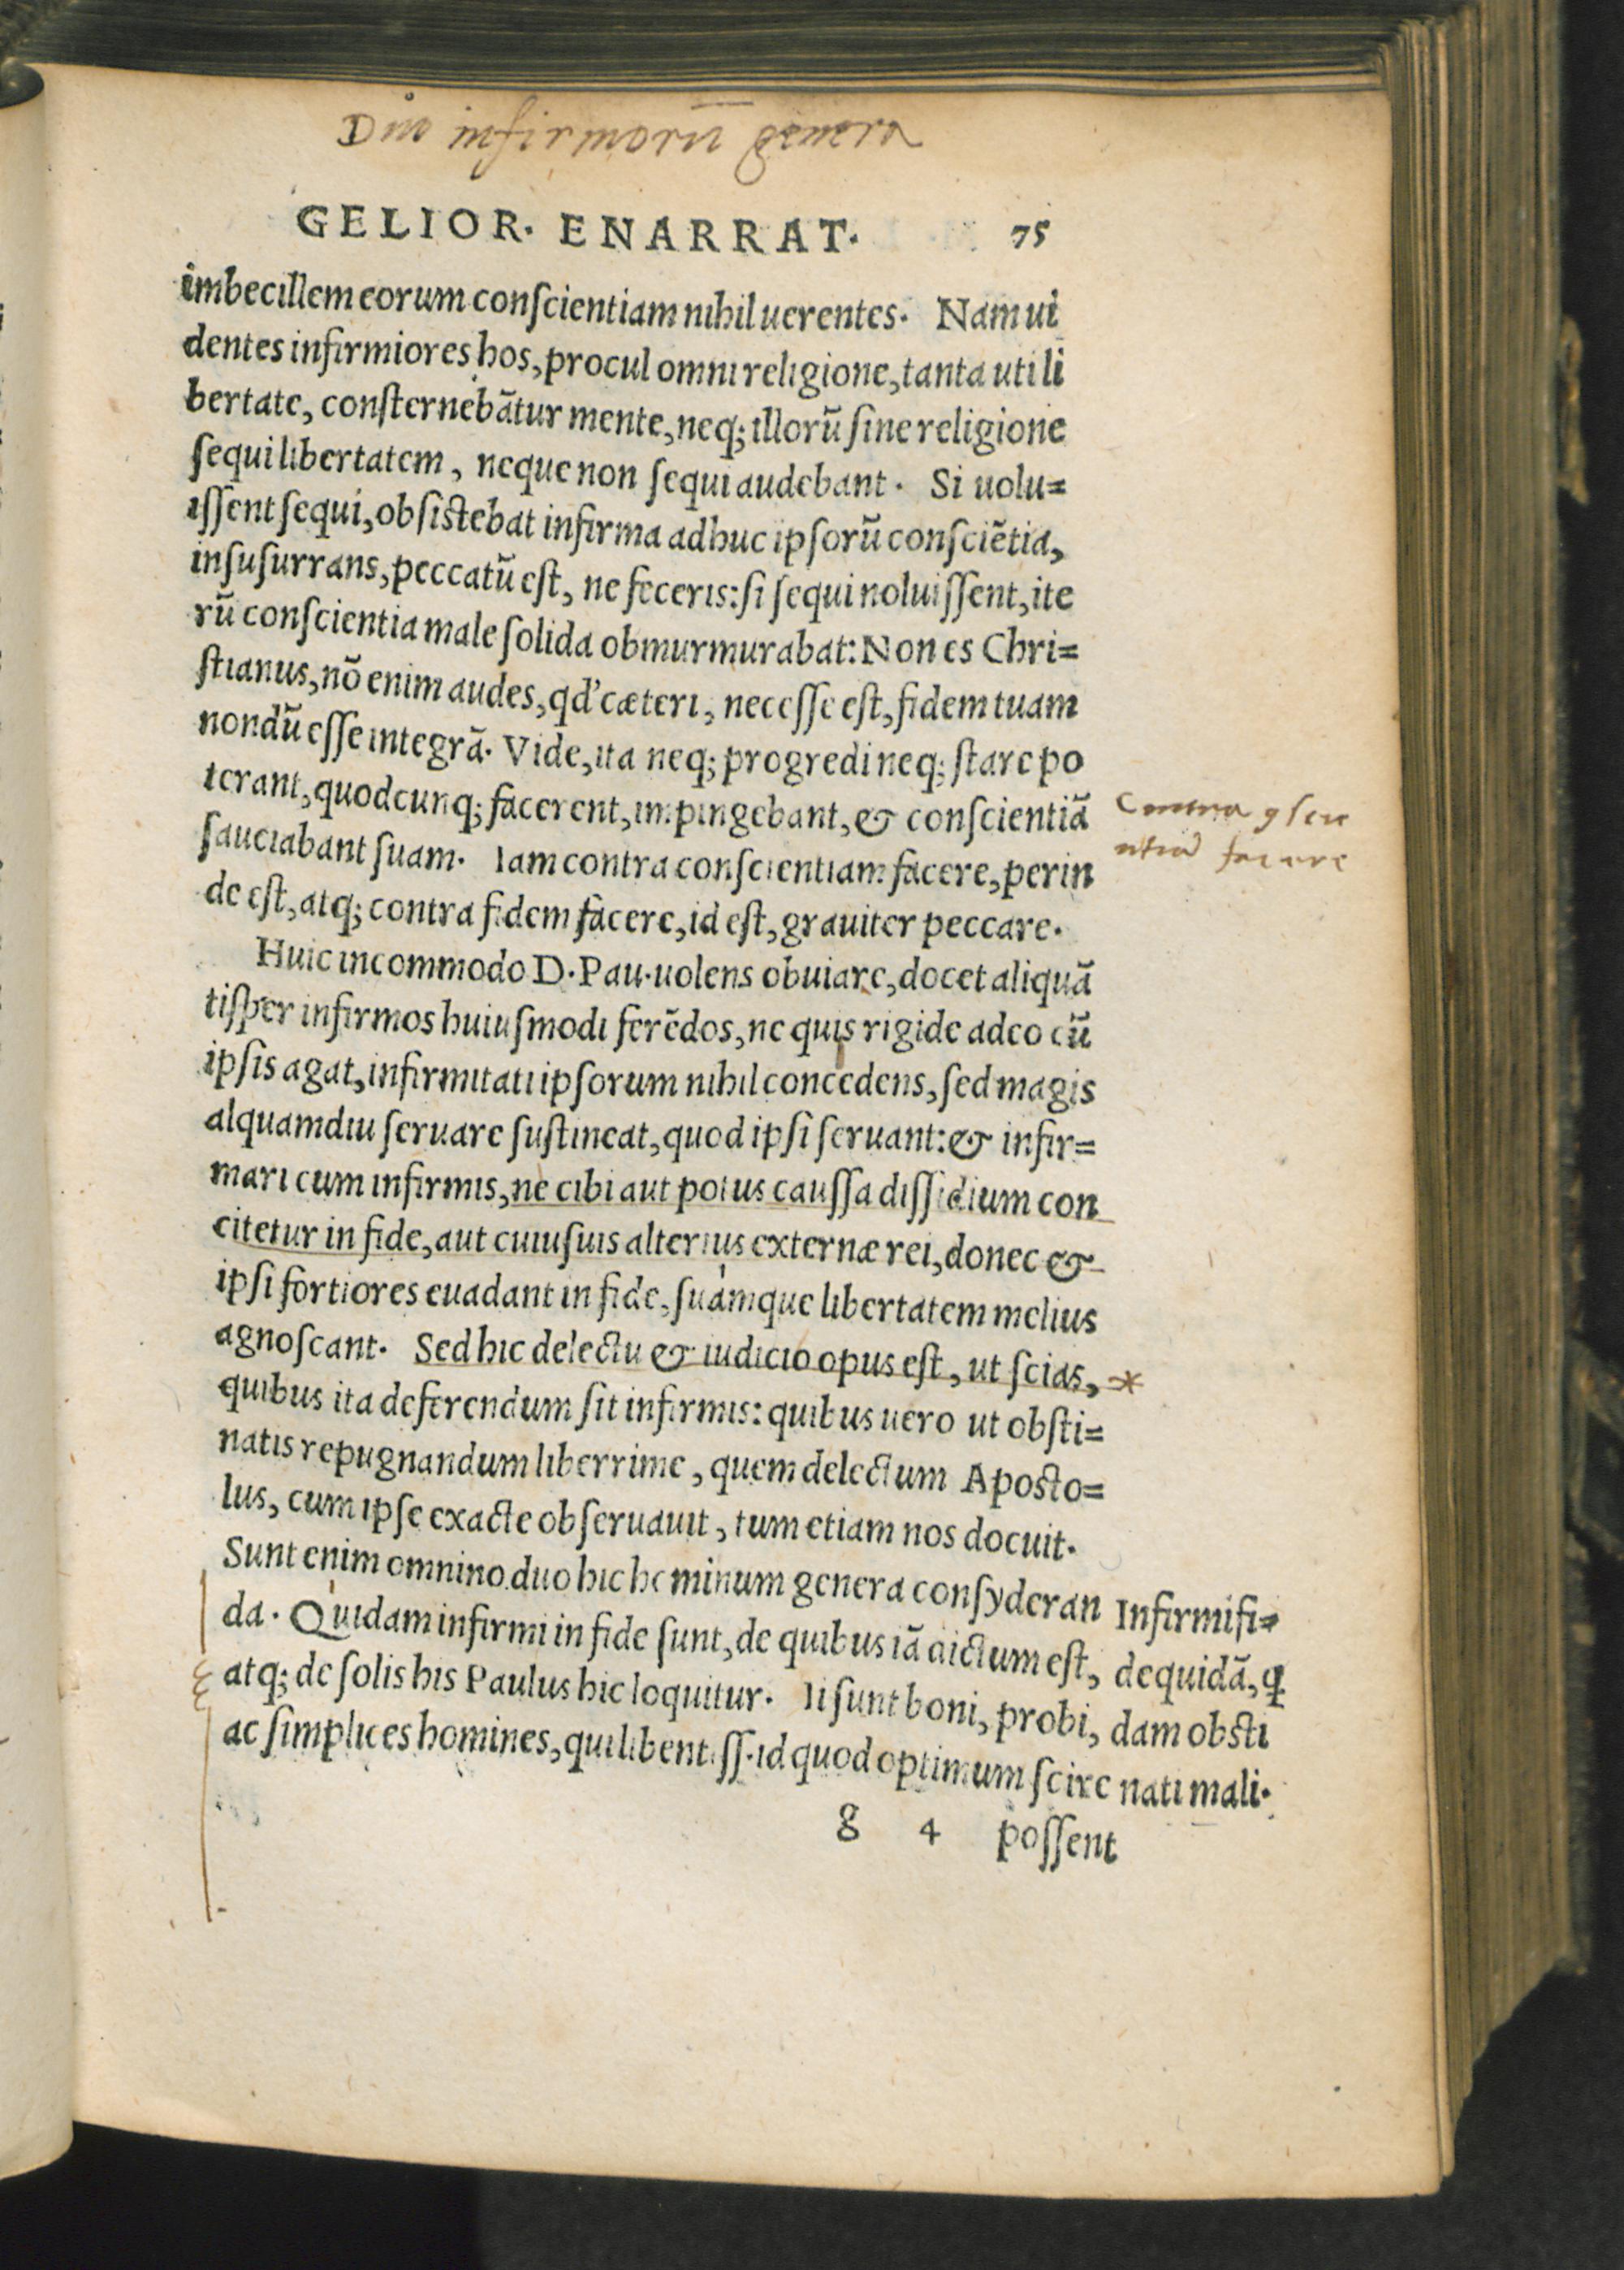 Duo infirmorū genera
GELIOR. ENARRAT. 75
imbecillem eorum conſcientiam nihil uerentes. Nam ui
dentes infirmiores hos, procul omni religione, tanta uti li
bertate, conſternebãtur mente, neq; illorũ ſine religione
ſequi libertatem, neque non ſequi audebant. Si uolu=
iſſent ſequi, obſiſtebat infirma adhuc ipſorũ conſciẽtia,
inſuſurrans, peccatũ eſt, ne feceris: ſi ſequi noluiſſent, ite
rũ conſcientia male ſolida obmurmurabat: Non es Chri=
ſtianus, nõ enim audes, qd' cæteri, neceſſe eſt, fidem tuam
nondũ eſſe integrã. Vide, ita neq; progredi neq; ſtare po
terant, quodcunq; facerent, impingebant, & conſcientiã
ſauciabant ſuam. Iam contra conſcientiam facere, perin
de eſt, atq; contra fidem facere, id eſt, grauiter peccare.
Contra ꝯſcie
ntiã facere
Huic incommodo D. Pau. uolens obuiare, docet aliquã
tiſper infirmos huiuſmodi ferẽdos, ne quis rigide adeo cũ
ipſis agat, infirmitati ipſorum nihil concedens, ſed magis
alquamdiu ſeruare ſuſtineat, quod ipſi ſeruant: & infir=
mari cum infirmis, ne cibi aut potus cauſſa diſſidium con
citetur in fide, aut cuiuſuis alterius externæ rei, donec &
ipſi fortiores euadant in fide, ſuamque libertatem melius
agnoſcant. Sed hic delectu & iudicio opus eſt, ut ſcias, *
quibus ita deferendum ſit infirmis: quibus uero ut obſti=
natis repugnandum liberrime, quem delectum Apoſto=
lus, cum ipſe exacte obſeruauit, tum etiam nos docuit.
Sunt enim omnino duo hic hominum genera conſyderan
da. Quidam infirmi in fide ſunt, de quibus iã dictum eſt,
atq; de ſolis his Paulus hic loquitur. Ii ſunt boni, probi,
ac ſimplices homines, qui libentiſſ. id quod optimum ſcire
Infirmi fi=
de quidã, q
dam obſti
nati mali.
g 4 poſſent